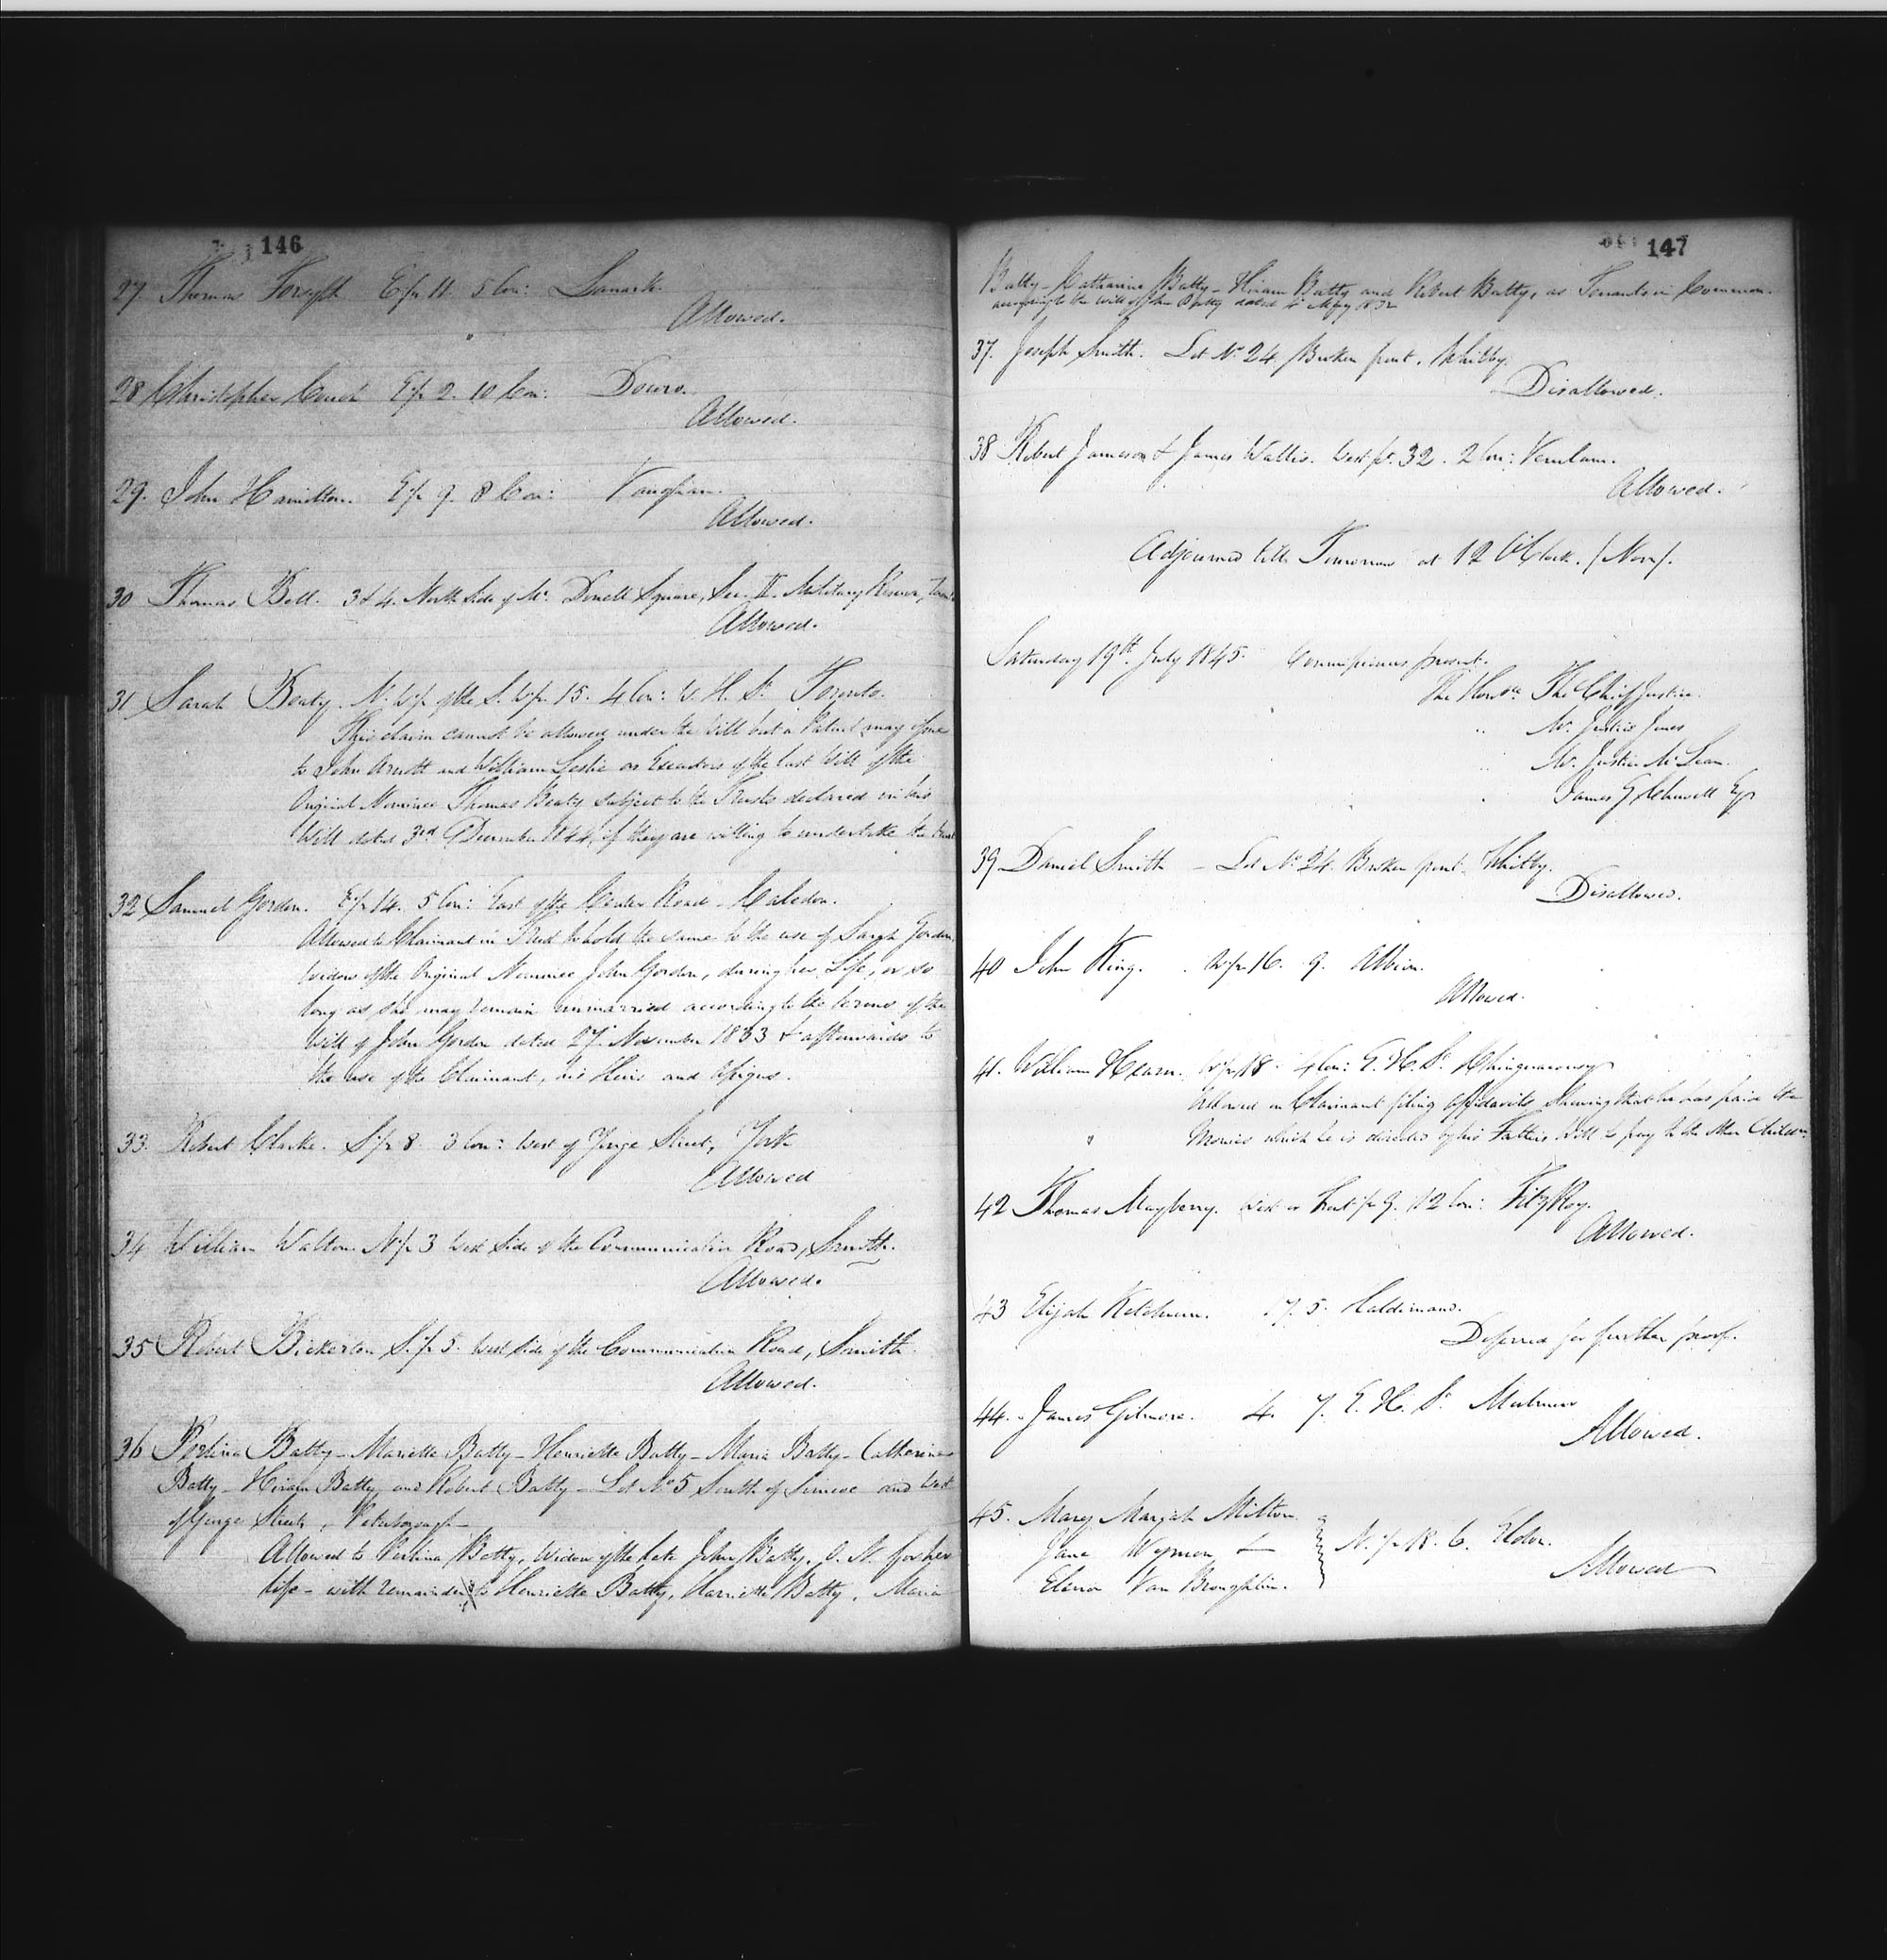 146
27. Thomas Forsyth E½ 11. 5 Con: Lanark.
Allowed.
28 Christopher Couch E½ 2. 10 Con: Douro.
Allowed.
29. John Hamilton. E½ 9. 8 Con: Vaughan.
Allowed.
30 Thomas Bell. 3 & 4. North Side of Mc Donell Square, Sec. II. Military Reserve,
Allowed.
31 Sarah Beaty. N. W½ of the S. W½ 15. 4 Con: W. H. St. Toronto.
This claim cannot be allowed under the Will but a Patent may issue
to John Arnott and William Leslie as Executors of the last Will of the
Original Nominee Thomas Beaty subject to the Trusts declared in his
Will dated 3rd December 1844, if they are willing to undertake the trust
32 Samuel Gordon. E½ 14. 5 Con: East of the Center Road - Caledon.
Allowed to Claimant in Trust to hold the same to the use of Sarah Gordon,
widow of the Original Nominee John Gordon, during her Life, or so
long as she may remain unmarried according to the terms of the
Will of John Gordon dated 27 November 1833 & afterwards to
the use of the Claimant, his Heirs and Assigns.
33. Robert Clarke. S½ 8. 3 Con: West of Yonge Street, York
Allowed
34 William Walton N½ 3 West Side of the Communication Road, Smith.
Allowed.
35 Robert Bickerton S.½ 5. West Side of the Communication Road, Smith.
Allowed.
36 Batty - Mariette Batty - Henrietta Batty - Maria Batty - Catherine
Batty - Hiram Batty and Robert Batty - Lot No 5 South of Simcoe and West
of George Streets, Peterborough -
Allowed to Batty, Widow of the late John Batty. O. N. for her
life - with remainder to Henrietta Batty, Harriette Batty, Maria
147
Batty - Catharine Batty - Hiram Batty and Robert Batty, as Tenants in Common.
according to the Will of John Batty dated
37. Joseph Smith. Lot No 24 Broken front, Whitby.
Disallowed.
38 Robert Jameson & James Wallis. West pt. 32. 2 Con: Verulam.
Allowed.
Adjourned till Tomorrow at 12 O'Clock. (Noon).
Saturday 19th July 1845. Commissioners present.
The Honble The Chief Justice.
" Mr. Justice Jones
" Mr. Justice McLean.
James G Chewett Esqr
39 Daniel Smith - Lot No 24. Broken front - Whitby.
Disallowed.
40 John King. W½ 16. 9. Albion.
Allowed.
41. William Hearn. W½ 18. 4 Con: E. H. St. Chinguacousy
Allowed on Claimant filing Affidavits shewing that he has paid the
Monies which he is directed by his Father's Will to pay to the other Children.
42 Thomas Mayberry. West or Front ½ 9. 12 Con: Fitz Roy.
Allowed.
43 Elijah Ketchum. 17. 5. Haldimand.
Deferred for further proof.
44. James Gilmore. 4. 7. E. H. St. Mulmur
Allowed.
45. Mary Marjah Mitton.
Jane Wymon & N. ½ 18. 6. Eldon.
Elenor Van Broughlin.
Allowed